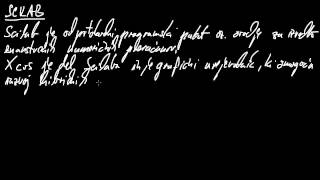 SCILAB
Scilab je odprtokodni programski paket oz. orodje za izvedbo
numeričnih preračunov.
Xcos je del Scilaba in je grafični urejevalnik, ki omogoča
razvoj hibridnih